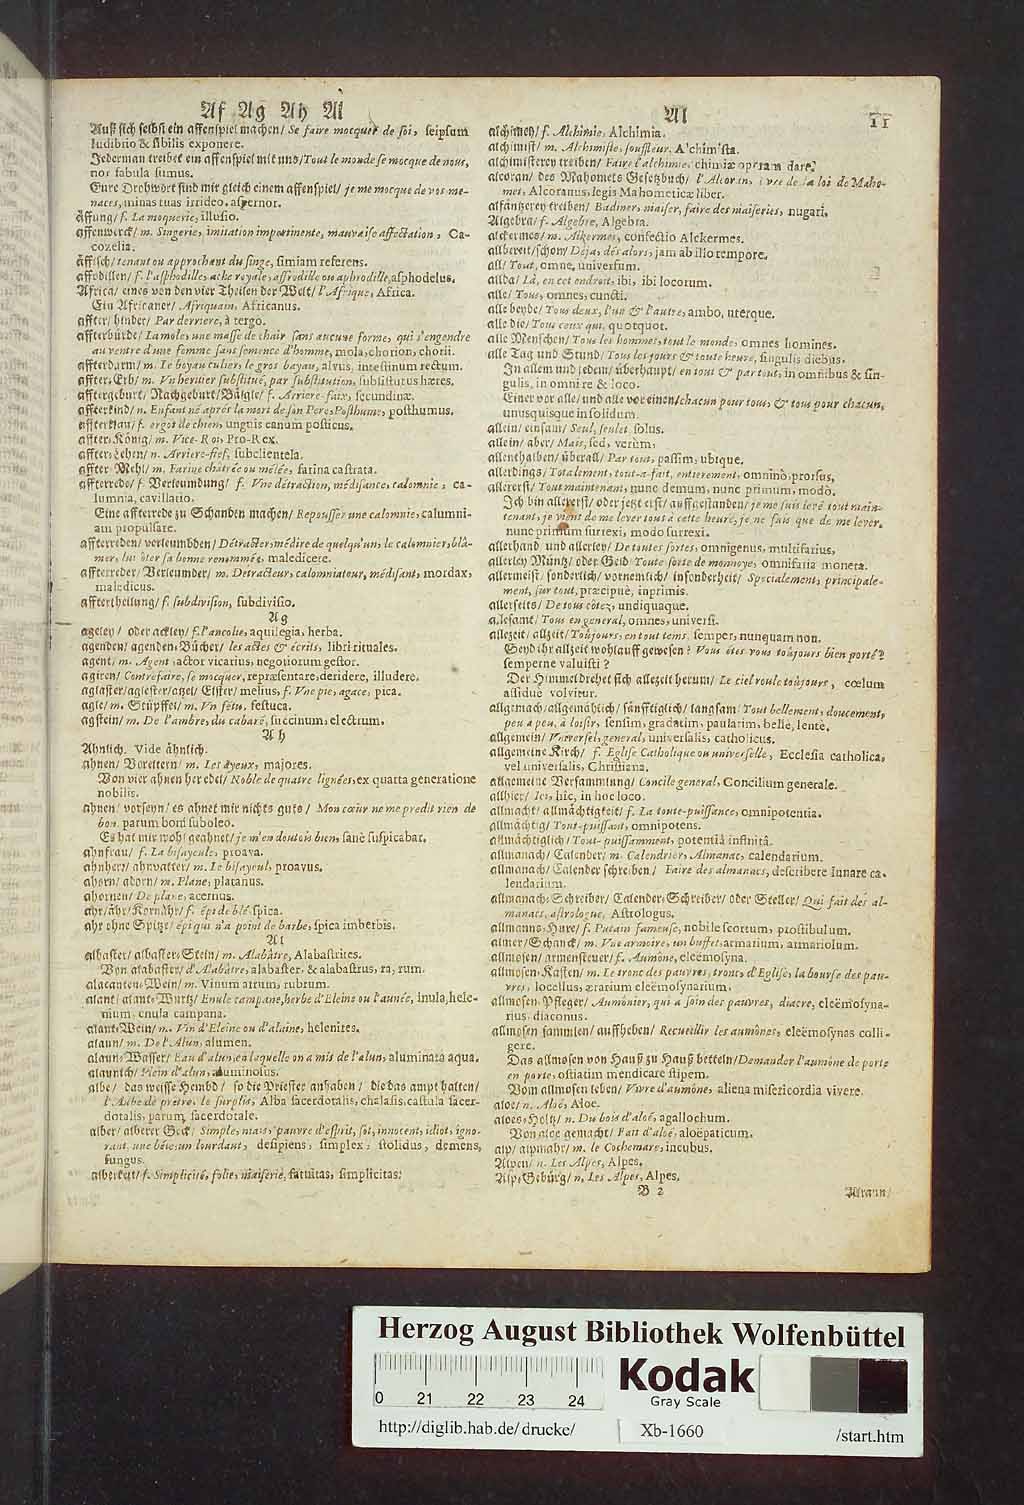 Af Ag Ah Al
Auß sich selbst ein affenspiel machen/ Se faire mocquer de soi, seipsum
ludibrio & sibilis exponere.
Jederman treibet ein affenspiel mit uns/ Tout le monde se mocque de nous,
nos fabula sumus.
Eure Drohwört sind mir gleich einem affenspiel/ je me mocque de vos me-
naces, minas tuas irrideo. aspernor.
äffung/ f. La moquerie, illusio.
affenwerck/ n. Singerie, imitation impertinente, mauvaise affectation, Ca-
cozelia.
äffisch/ tenant ou approchant du singe, simiam referens.
affodillen/ f. l'asphodille, ache royale, affrodille ou aphrodille, asphodelus.
Africa/ eines von den vier Theilen der Welt/ l'Afrique, Africa.
Ein Africaner/ Afriquain, Africanus.
affter/ hinder/ Par derriere, à tergo.
affterbürde/ La mole, une masse de chair sans aucune forme, qui s'engendre
au ventre d'une femme sans semence d'homme, mola, chorion, chorii.
affterdarm/ m. Le boyau culier, le gros boyau, alvus, intestinum rectum.
affter-Erb/ m. Vn heritier substitué, par substitution, substitutus hæres.
afftergeburt/ Nachgeburt/ Bälgle/ f. Arriere-faix, secundinæ.
affterkind/ n. Enfant né aprés la mort de son Pere, Posthume, posthumus.
affterklau/ f. ergot de chien, unguis canum posticus.
affter-König/ m. Vice-Roi, Pro-Rex.
affter-Lehen/ n. Arriere-fief, subclientela.
affter Mehl/ m. Farine chátrée ou mêlée, farina castrata.
affterrede/ f. Verleumdung/ f. Vne détraction, médisance, calomnie, ca-
lumnia, cavillatio.
Eine affterrede zu Schanden machen/ Repousser une calomnie, calumni-
am propulsare.
affterreden/ verleumbden/ Détracter, médire de quelqu'un, le calomnier, blâ-
mer, lui ôter sa bonne renommée, maledicere.
affterreder/ Verleumder/ m. Detracteur, calomniateur, médisant, mordax,
maledicus.
afftertheilung/ f. subdivision, subdivisio.
Ag
ageley/ oder ackley/ f. l'ancolie, aquilegia, herba.
agenden/ agenden-Bücher/ les actes & écrits, libri rituales.
agent/ m. Agent, actor vicarius, negotiorum gestor.
agiren/ Contrefaire, se mocquer, repræsentare, deridere, illudere.
aglaster/ aglester/ atzel/ Elster/ melius, f. Vne pie, agace, pica.
agle/ m. Stüpffel/ m. Vn fétu, festuca.
agstein/ m. De l'ambre, du cabaré, succinum, electrum.
Ah
Ahnlich. Vide ähnlich.
ahnen/ Voreltern/ m. Les ayeux, majores.
Von vier ahnen her edel/ Noble de quatre lignées, ex quarta generatione
nobilis.
ahnen/ vorseyn/ es ahnet mir nichts guts/ Mon cœur ne me predit rien de
bon. parum boni suboleo.
Es hat mir wohl geahnet/ je m'en doutois bien, sanè suspicabar.
ahnfrau/ f. La bisayeule, proava.
ahnherr/ ahnvatter/ m. Le bisayeul, proavus.
ahorn/ aborn/ m. Plane, platanus.
ahornen/ De plane, acernus.
ahr/ ähr/ Kornähr/ f. épi de blé, spica.
ahr ohne Spitze/ épi qui n'a point de barbe, spica imberbis.
Al
albaster/ albaster-Stein/ m. Alabâtre, Alabastrites.
Von alabaster/ d'Alabâtre, alabaster. & alabastrus, ra, rum.
alacanten-Wein/ m. Vinum atrum, rubrum.
alant/ alant-Wurtz/ Enule campane, herbe d'Eleine ou l'aunée, Inula, hele-
nium, enula campana.
alant-Wein/ m. Vin d'Eleine ou d'alaine, helenites.
alaun/ m. De l'Alun, alumen.
alaun-Wasser/ Eau d'alun, en laquelle on a mis de l'alun, aluminata aqua.
alaunich/ Plein d'alun, aluminosus.
albe/ das weisse Hembd/ so die Priester anhaben/ die das ampt halten/
l'Aube de prétre, le surplis, Alba sacerdotalis, chalasis, castula sacer-
dotalis, parum sacerdotale.
alber/ alberer Geck/ Simple, niais, pauvre d'esprit, sot, innocent, idiot, igno-
rant, une bête, un lourdaut, desipiens, simplex, stolidus, demens,
fungus.
alberkeit/ f. Simplicité, folie, niaiserie, fatuitas, simplicitas.
Al
11
alchimey/ f. Alchimie, Alchimia.
alchimist/ m. Alchimiste, souffleur, Alchimista.
alchimisterey treiben/ Faire l'alchimie, chimiæ operam dare.
alcoran/ des Mahomets Gesetzbuch/ l'Alcoran, livre de la loi de Maho-
met, Alcoranus, legis Mahometicæ liber.
alfäntzerey treiben/ Badiner, niaiser, faire des niaiseries, nugari.
Algebra/ f. Algebre, Algebra.
alckermes/ m. Alkermes, confectio Alckermes.
allbereit/ schon/ Déja, dés alors, jam ab illo tempore.
all/ Tout, omne, universum.
allda/ Là, en cet endroit, ibi, ibi locorum.
alle/ Tous, omnes, cuncti.
alle beyde/ Tous deux, l'un & l'autre, ambo, uterque.
alle die/ Tous ceux qui, quotquot.
alle Menschen/ Tous les hommes, tout le monde, omnes homines.
alle Tag und Stund/ Tous les jours & toute heure, singulis diebus.
In allem und jedem/ überhaupt/ en tout & par tout, in omnibus & sin-
gulis, in omni re & loco.
Einer vor alle/ und alle vor einen/ chacun pour tous, & tous pour chacun,
unusquisque in solidum.
allein/ einsam/ Seul, seulet, solus.
allein/ aber/ Mais, sed, verùm.
allenthalben/ überall/ Par tout, passim, ubique.
allerdings/ Totalement, tout-a-fait, entierement, omninò, prorsus,
allererst/ Tout maintenant, nunc demum, nunc primum, modò.
Ich bin allererst/ oder jetzt erst/ auffgestanden/ je me suis levé tout main-
tenant, je vient de me lever tous à cette heure, je ne fais que de me lever,
nunc primum surrexi, modo surrexi.
allerhand und allerley/ De toutes sortes, omnigenus, multifarius,
allerley Müntz/ oder Geld/ Toute sorte de monnoye, omnifaria moneta.
allermeist/ sonderlich/ vornemlich/ insonderheit/ Specialement, principale-
ment, sur tout, præcipuè, inprimis.
allerseits/ De tous côtez, undiquaque.
allesamt/ Tous en general, omnes, universi.
allezeit/ allzeit/ Toûjours, en tout tems, semper, nunquam non.
Seyd ihr allzeit wohlauff gewesen? Vous étes vous toûjours bien porté?
semperne valuisti?
Der Himmel drehet sich allezeit herum/ Le ciel roule toûjours, cœlum
assiduè volvitur.
allgemach/ allgemählich/ sänfftiglich/ langsam/ Tout bellement, doucement,
peu a peu, à loisir, sensim, gradatim, paulatim, bellè, lentè.
allgemein/ Vniversel, general, universalis, catholicus.
allgemeine Kirch/ f. Eglise Catholique ou universelle, Ecclesia catholica,
vel universalis, Christiana.
allgemeine Versammlung/ Concile general, Concilium generale.
allhier/ Ici, hîc, in hoc loco.
allmacht/ allmächtigkeit/ f. La toute-puissance, omnipotentia.
allmächtig/ Tout-puissant, omnipotens.
allmächtiglich/ Tout-puissamment, potentiâ infinitâ.
allmanach/ Calender/ m. Calendrier, Almanac, calendarium.
allmanach/ Calender schreiben/ Faire des almanacs, describere lunare ca-
lendarium.
allmanach-Schreiber/ Calender-Schreiber/ oder Steller/ Qui fait des al-
manacs, astrologue, Astrologus.
allmanns-Hure/ f. Putain fameuse, nobile scortum, prostibulum.
almer/ Schanck/ m. Vne armoire, un buffet, armarium, armariolum.
allmosen/ armensteuer/ f. Aumône, eleëmosyna.
allmosen-Kasten/ m. Le tronc des pauvres, tronc d'Eglise, la bourse des pau-
vres, locellus, ærarium eleëmosynarium.
allmosen-Pfleger/ Aumônier, qui a soin des pauvres, diacre, eleëmosyna-
rius, diaconus.
allmosen sammlen/ auffheben/ Recueillir les aumônes, eleëmosynas colli-
gere.
Das allmosen von Hauß zu Hauß betteln/ Demander l'aumône de porte
en porte, ostiatim mendicare stipem.
Vom allmosen leben/ Vivre d'aumône, aliena misericordia vivere.
aloe/ n. Aloë, Aloe.
aloes-Holtz/ n. Du bois d'aloë, agallochum.
Von aloe gemacht/ Fait d'aloë, aloëpaticum.
alp/ alpmahr/ m. le Cochemare, incubus.
Alpen/ n. Les Alpes, Alpes.
Alp-Gebürg/ n. Les Alpes, Alpes.
B 2
Alraun/
Herzog August Bibliothek Wolfenbüttel
Kodak
Gray Scale
0 21 22 23 24
http://diglib.hab.de/drucke/
Xb-1660
/start.htm